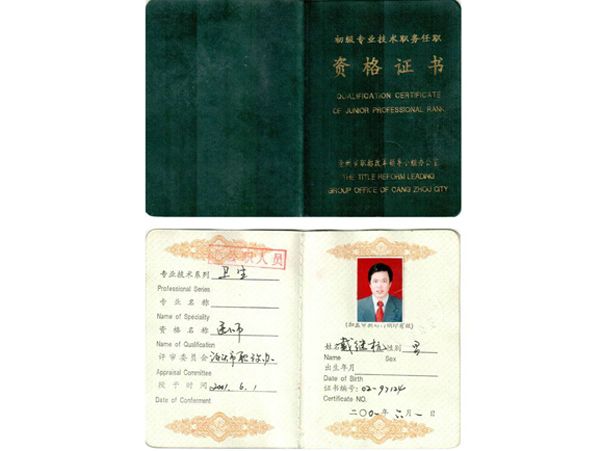 初级专业技术职务任职
资格证书
QUALIFICATION CERTIFICATE
OF JUNIOR PROFESSIONAL RANK
沧州市职称改革领导小组办公室
THE TITLE REFORM LEADING
GROUP OFFICE OF CANG ZHOU CITY
职人员
专业技术系列 卫生
Professional Series
专业名称
Name of Speciality
资格名称 医师
Name of Qualification
评审委员会 市职称办
Appraisal Committee
授予时间 2001.6.1
Date of Conferment
姓名 戴继 性别 男
Name Sex
出生年月
Date of Birth
证书编号: 02-97124
Certificate NO.
二〇〇1年 六月一日